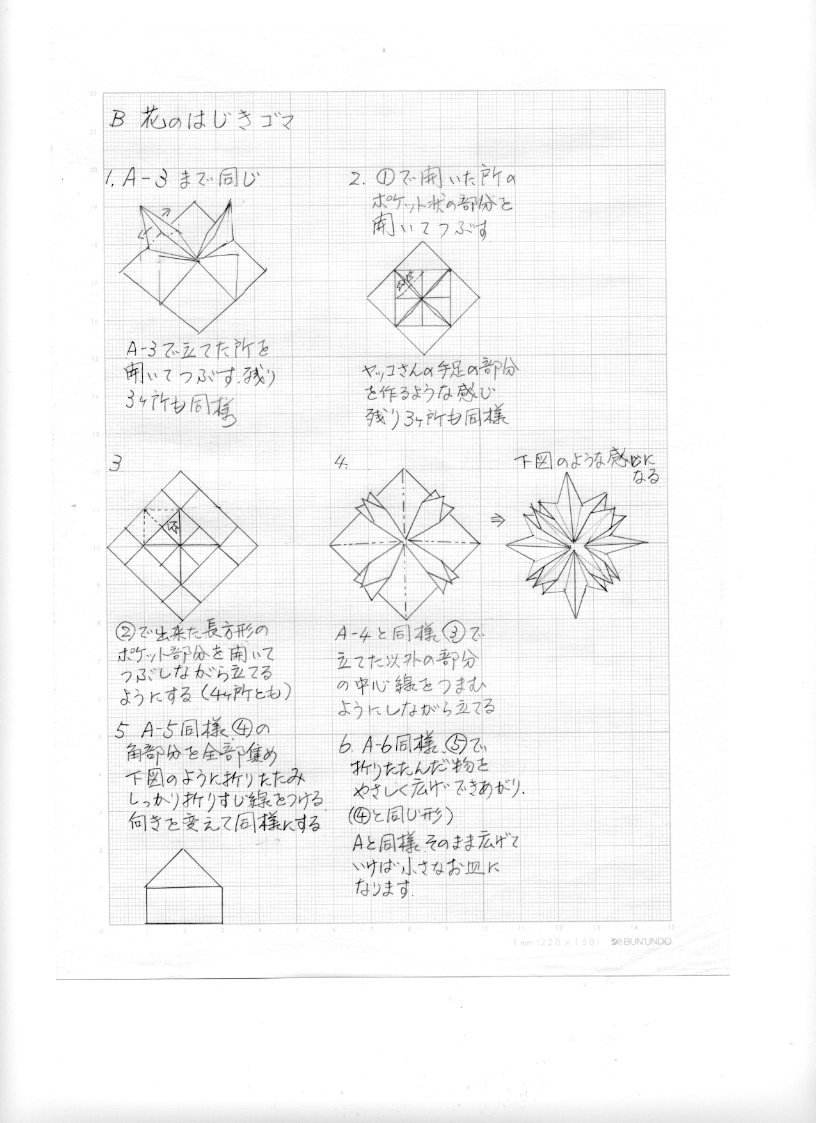 B 花のはじきゴマ
1. A-3まで同じ
A-3で立てた所を
開いてつぶす.残り
3ヶ所も同様
2. ①で開いた所の
ポケット状の部分を
開いてつぶす
ヤッコさんの手足の部分
を作るような感じ
残り3ヶ所も同様
3
②で出来た長方形の
ポケット部分を開いて
つぶしながら立てる
ようにする(4ヶ所とも)
4.
A-4と同様③で
立てた以外の部分
の中心線をつまむ
ようにしながら立てる
⇒
下図のような感じに
なる
5 A-5同様、④の
角部分を全部集め
下図のように折りたたみ
しっかり折りすじ線をつける.
向きを変えて同様にする
6. A-6同様、⑤で
折りたたんだ物を
やさしく広げできあがり.
(④と同じ形)
Aと同様、そのまま広げて
いけば小さなお皿に
なります.
22
21
20
19
18
17
16
15
14
13
12
11
10
0 1 2 3 4 5 6 7 8 9 10 11 12 13 14 15
1mm(220×150) BUN'UNDO